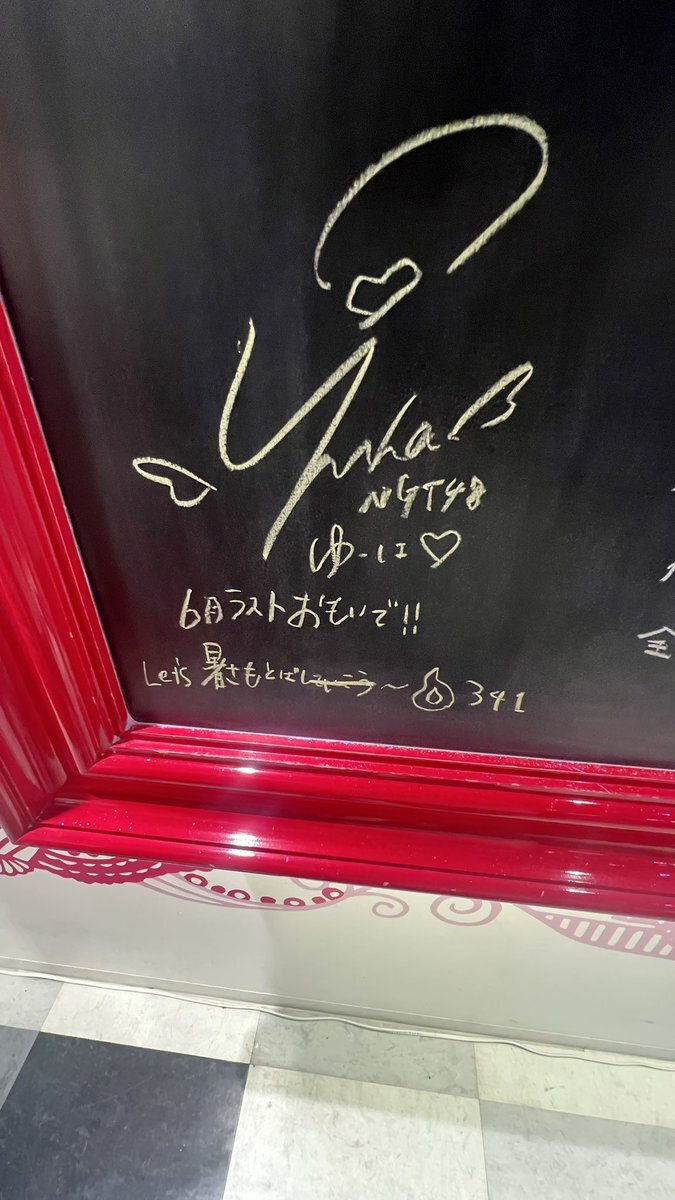 NGT48
ゆーに♡
6月ラストおもいで!!
Let's 暑さもとばし 〜 341
全